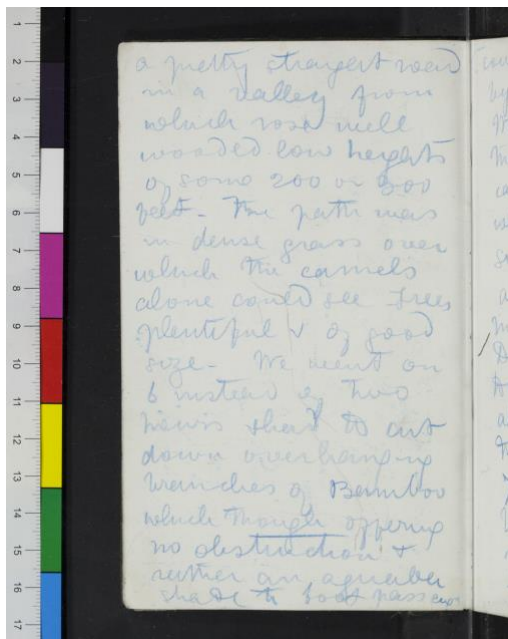 a pretty straight road
in a valley from
which rose well
wooded low heights
of some 200 or 300
feet - The path was
in dense grass over
which the camels
alone could see Trees
plentiful & of good
size - We went on
6 instead of two
hours & had to cut
down overhanging
branches of Bamboo
which though offering
no obstruction &
rather an agreeable
shade to foot passengers
1
2
3
4
5
6
7
8
9
10
11
12
13
14
15
16
17